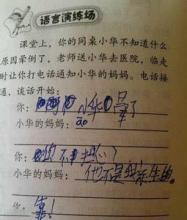 语言演练场
课堂上，你的同桌小华不知道什么
原因晕倒了，老师送小华去医院，临走
时让你打电话通知小华的妈妈。电话接
通，谈话开始：
你：小华晕了
小华的妈妈：
你：不担心？
小华的妈妈：他不是我亲生的
你：